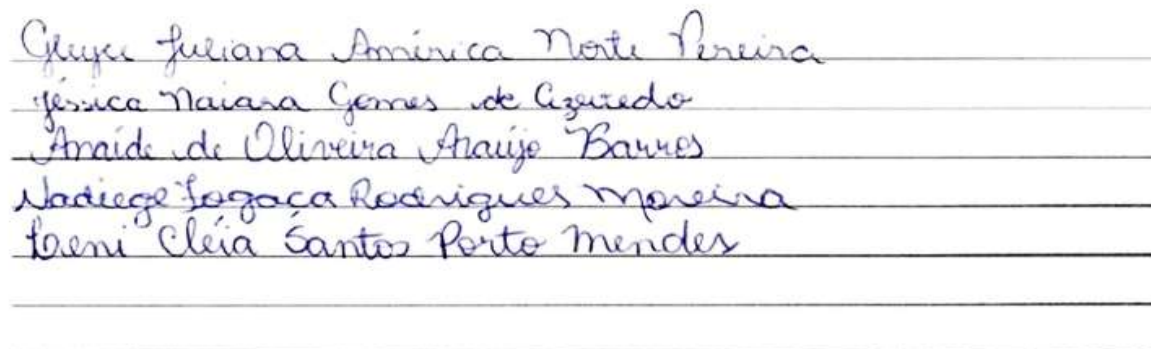 Juliana América Norte Pereira
Jéssica Naiara Gomes de Azevedo
Anaíde de Oliveira Araújo Barros
Nadiege Fogaça Rodrigues Moreira
Cléia Santos Porto Mendes